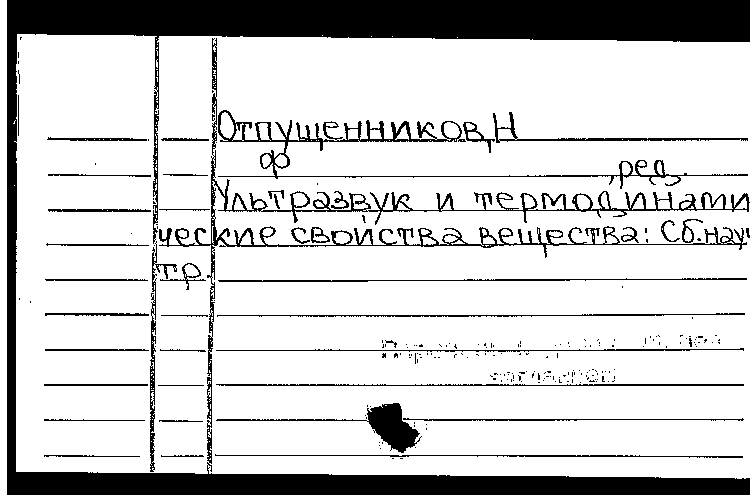 Отпущенников,Н
Ф
,ред.
Ультразвук и термодинами
ческие свойства вещества: Сб.науч
тр.